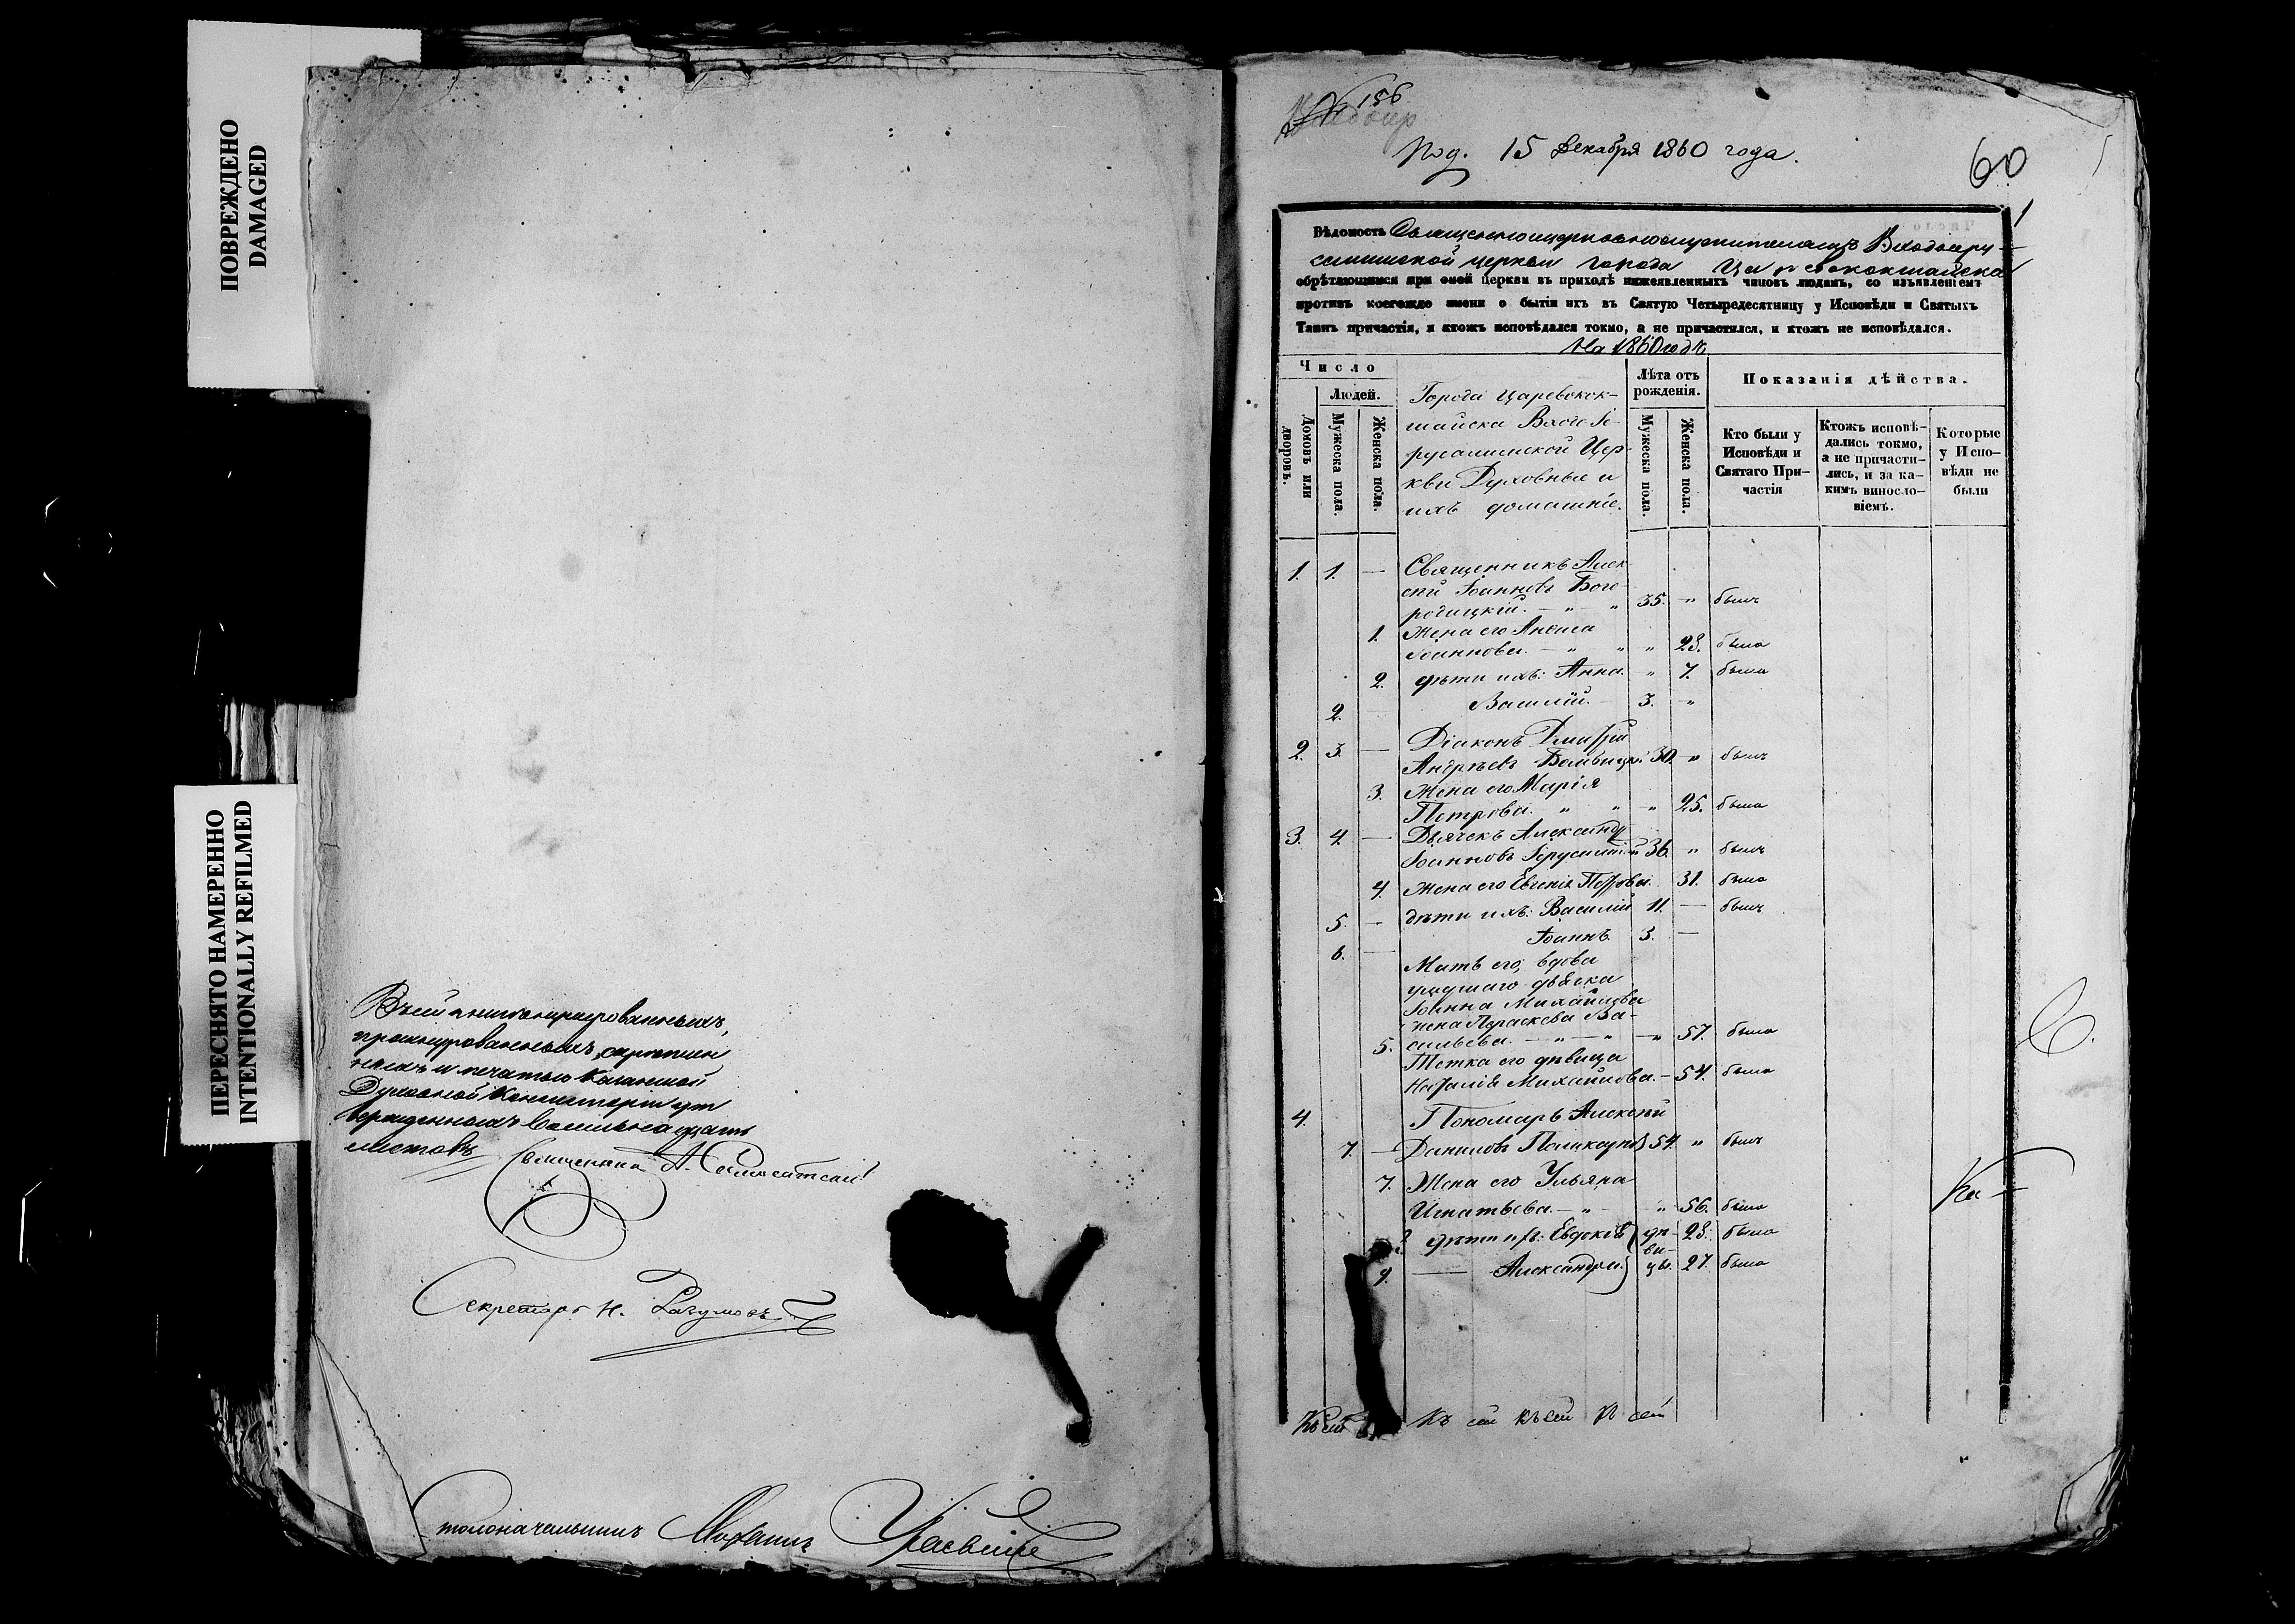 ПОВРЕЖДЕНО
DAMAGED
ПЕРЕСНЯТО НАМЕРЕННО
INTENTIONALLY REFILMED
Въ сей книгѣ нумерованныхъ,
прошнурованныхъ, скрѣплен
ныхъ и печатью Казанской
Духовной Консисторіи ут
вержденныхъ восемьнадцать
листовъ
Священник А.
Секретарь Н. Разумовъ
Столоначальникъ
156
Под. 15 Декабря 1860 года.
60
1
Вѣдомость Священноцерковнослужителямъ Входоіеру-
салимской церкви города Царевококшайска
обрѣтающимся при оной церкви въ приходѣ нижеявленныхъ чиновъ людямъ, со изъявленіемъ
противъ коегождо имени о бытіи ихъ въ Святую Четыредесятницу у Исповѣди и Святыхъ
Таинъ причастія, и ктожъ исповѣдался токмо, а не причастился, и ктожъ не исповѣдался.
На 1860 годъ
Число
Людей.
Домовъ или дворовъ.
Мужеска пола.
Женска пола.
Города Царевокок-
шайска Входоіе-
русалимской Цер-
кви Духовные и
ихъ домашніе.
Лѣта отъ рожденія.
Мужеска пола.
Женска пола.
Показанія дѣйства.
Кто были у Исповѣди и Святаго При-частія
Ктожъ исповѣ-дались токмо, а не причасти-лись, и за ка-кимъ винносло-віемъ.
Которые у Испо-вѣди не были
1. 1. — Священникъ Алек
сѣй Іоанновъ Бого-
родицкій. — " — " 35. " былъ
1. Жена его Анѳиса
Іоаннова. — " " " 28. была
2. дѣти ихъ: Анна. " 7. была
2. Василій. 3. "
2. 3. — Діаконъ Дмитрій
Андреевъ 30. " былъ
3. Жена его Марія
Петрова. " " " 25. была
3. 4. — Дьячекъ Александръ
Іоанновъ 36. " былъ
4. Жена его Евгенія Петрова. 31. была
5. — дѣти ихъ: Василій 11. — былъ
6. — Іоаннъ. 3. —
Мать его, вдова
умершаго дьячка
Іоанна Михайлова
жена Параскева Ва-
5. сильева. — " — " — " 57. была
Тетка его дѣвица
Наталія Михайлова. — 54. была
4. Пономарь Алексѣй
7. — Даниловъ 54. " былъ
7. Жена его Ульяна
Игнатьева. — " — " 56. была
дѣти ихъ: Евдокія дѣ- 28. была
ви-
9. — Александра. цы. 27. была
Къ сей Къ сей Къ сей Къ сей
Ка—